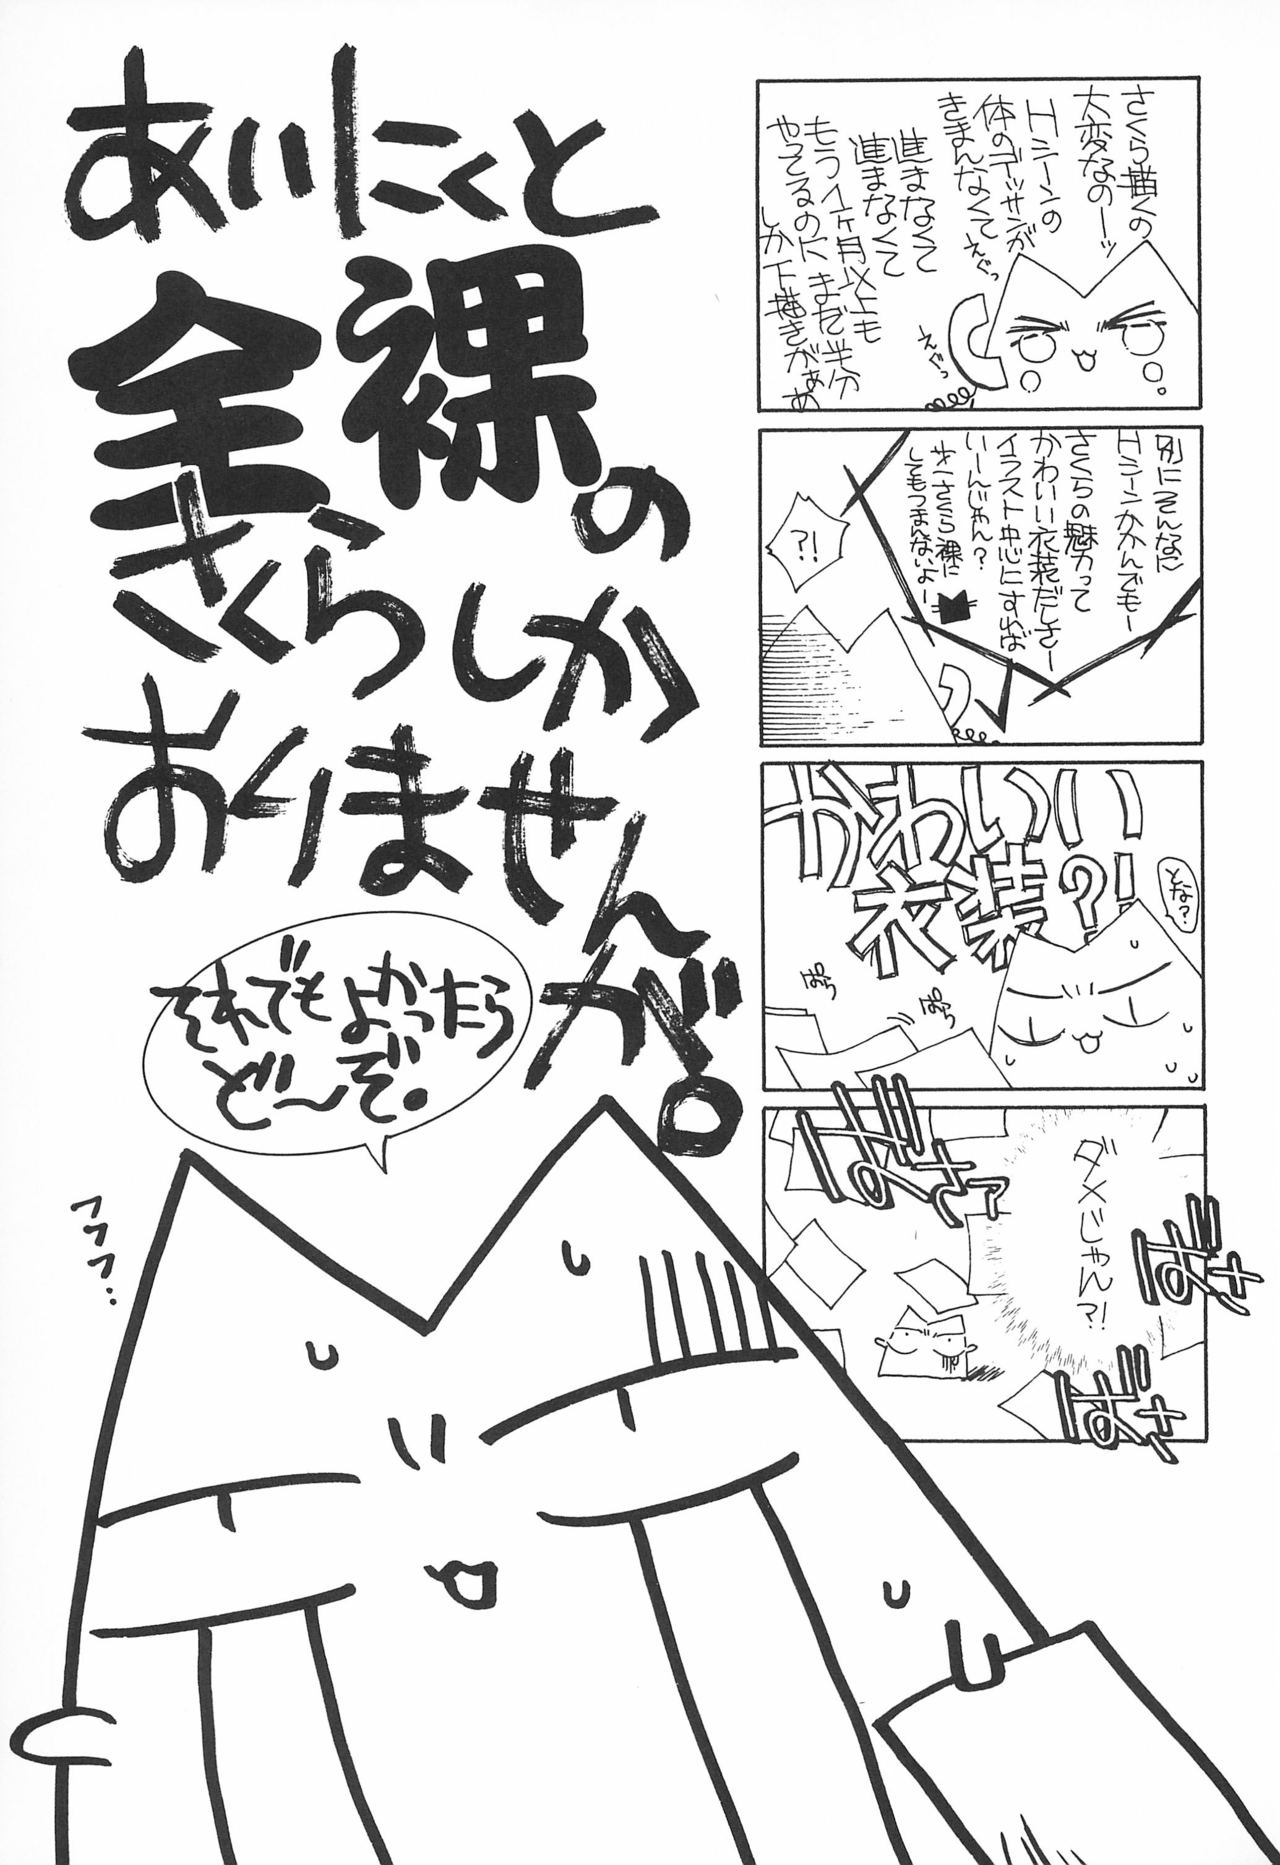 さくら描くの
大変なのーッ
Hシーンの
体のデッサンが
きまんなくて
えぐっ
進まなくて
進まなくて
もう1ヶ月以上も
やってるのにまだ半分
しか下描きがぁぁ
えぐっ
別にそんなに
Hシーンかかんでもー
さくらの魅力って
かわいい衣装だしさー
イラスト中心にすれば
いーんじゃん?
オールさくら裸に
してもつまんないよー
?!
かわいい
衣装?!
とな?
ぱらっ
ぱらっ
ダメじゃん?!
ばさっ
ばさァ
ばさっ
ばさっ
あいにくと
全裸の
さくらしか
おりませんが。
それでもよかったら
ど〜ぞ。
フフフ…